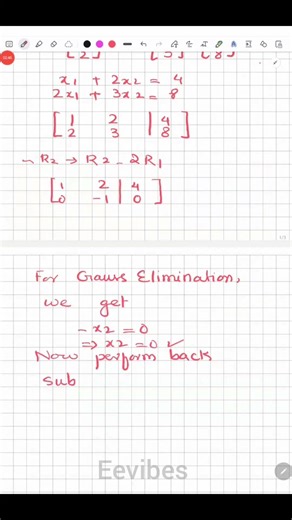 [2] [3] [8]
x1 + 2x2 = 4
2x1 + 3x2 = 8
[1 2 | 4
2 3 | 8]
~ R2 → R2 - 2R1
[1 2 | 4
0 -1 | 0]
For Gauss Elimination,
we get
-x2 = 0
⇒ x2 = 0 ✓
Now perform back
sub
Eevibes